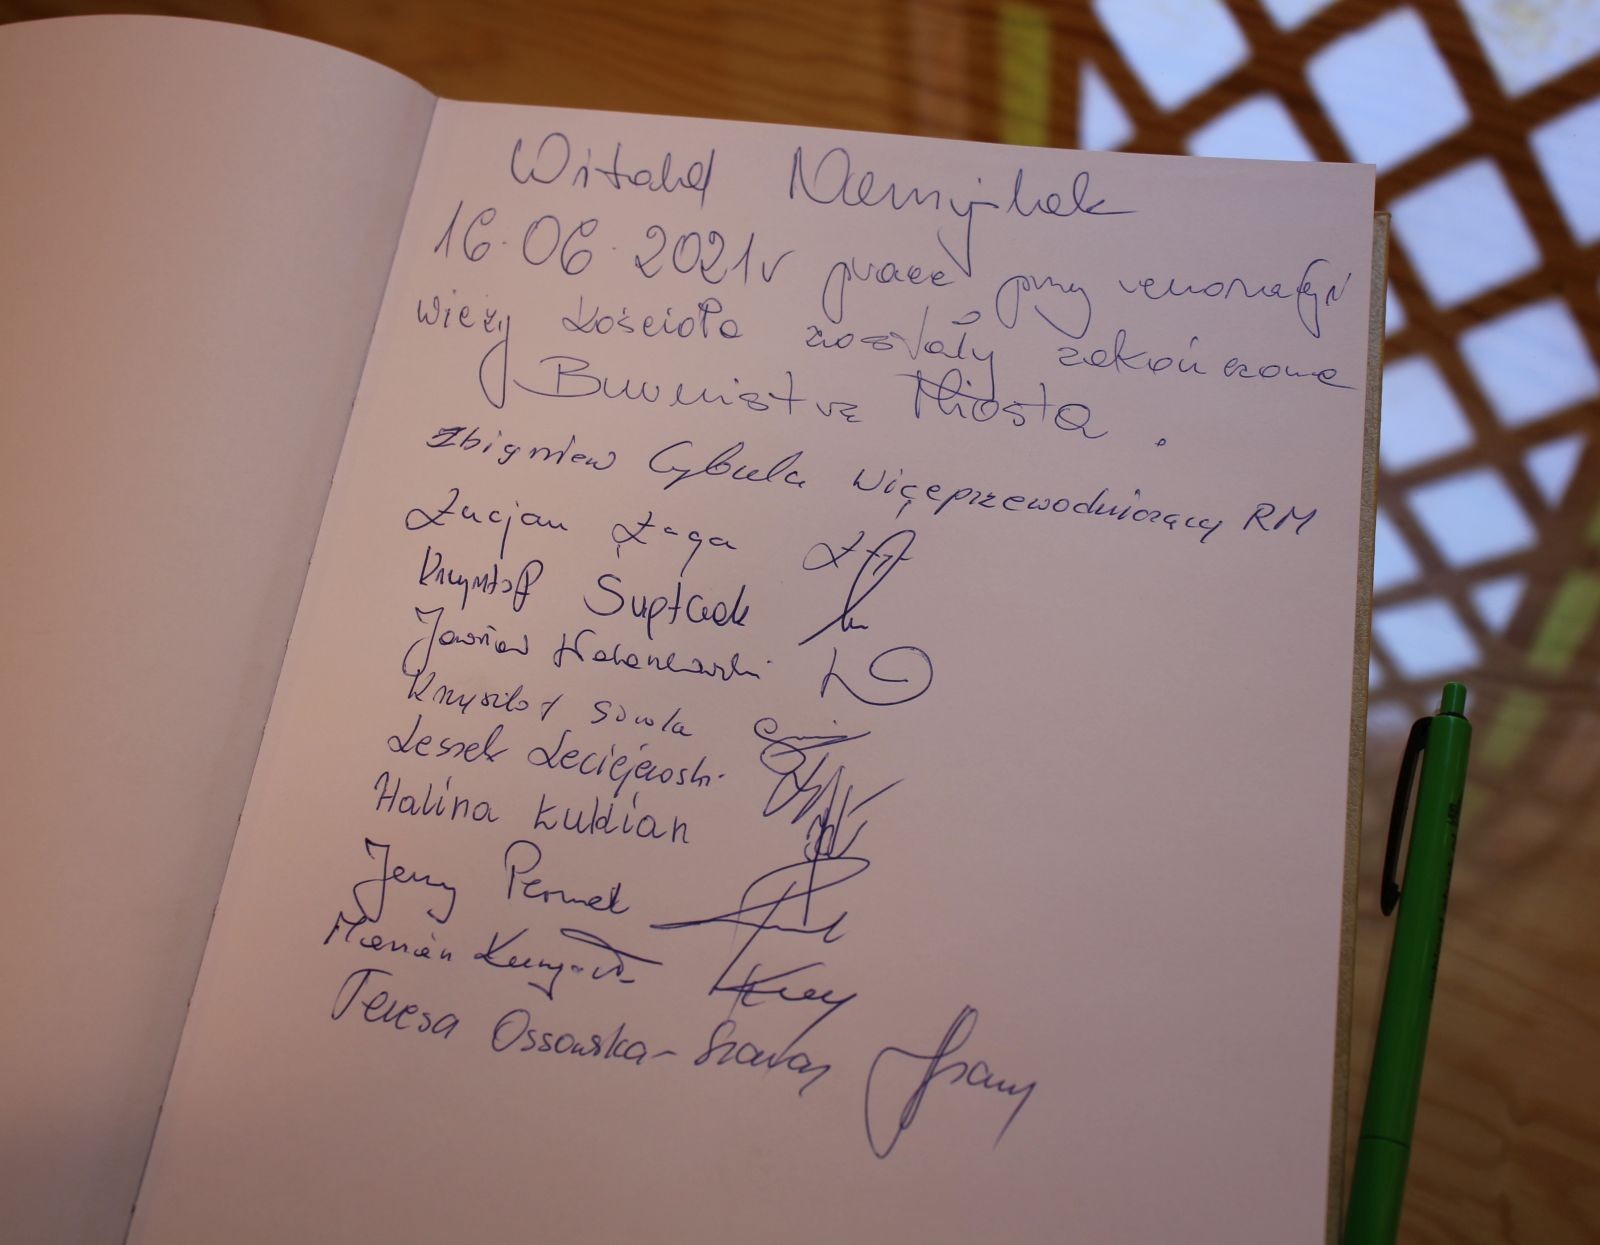 Witold
16.06.2021r prace przy renowacji
wieży kościoła zostały zakończone
Burmistrz Miasta.
Zbigniew Cybula Wiçeprzewodniczący RM
Lucjan Łaga
Krzysztof Suptak
Jarosław
Krzysztof Sowla
Leszek Leciejewski
Halina Łukian
Jerzy Permek
Marian
Teresa Ossowska-Szaray